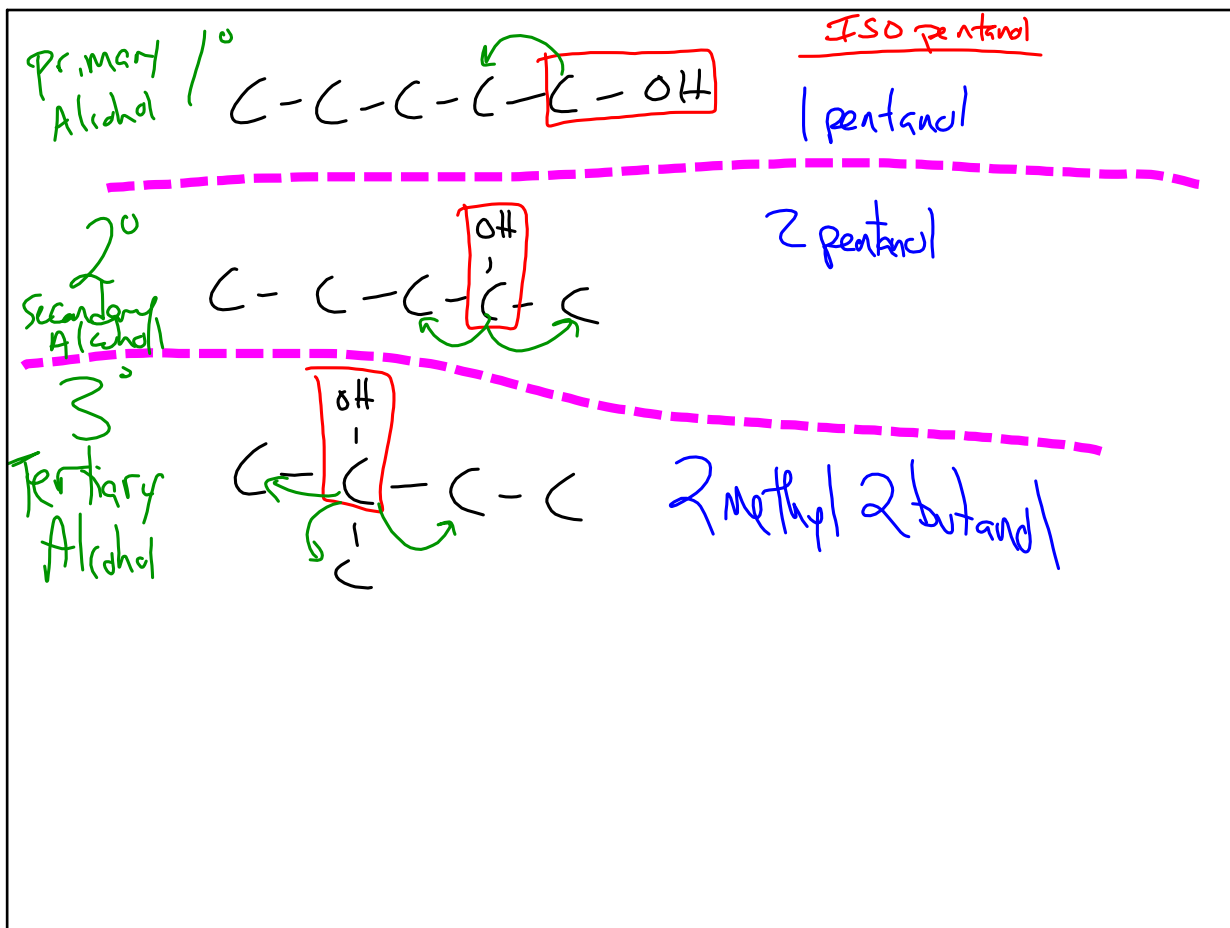 ISO pentanol
primary 1°
Alcohol
C - C - C - C - C - OH
1 pentanol
2°
secondary
Alcohol
OH
C - C - C - C - C
2 pentanol
3°
Tertiary
Alcohol
OH
C - C - C - C
C
2 methyl 2 butanol